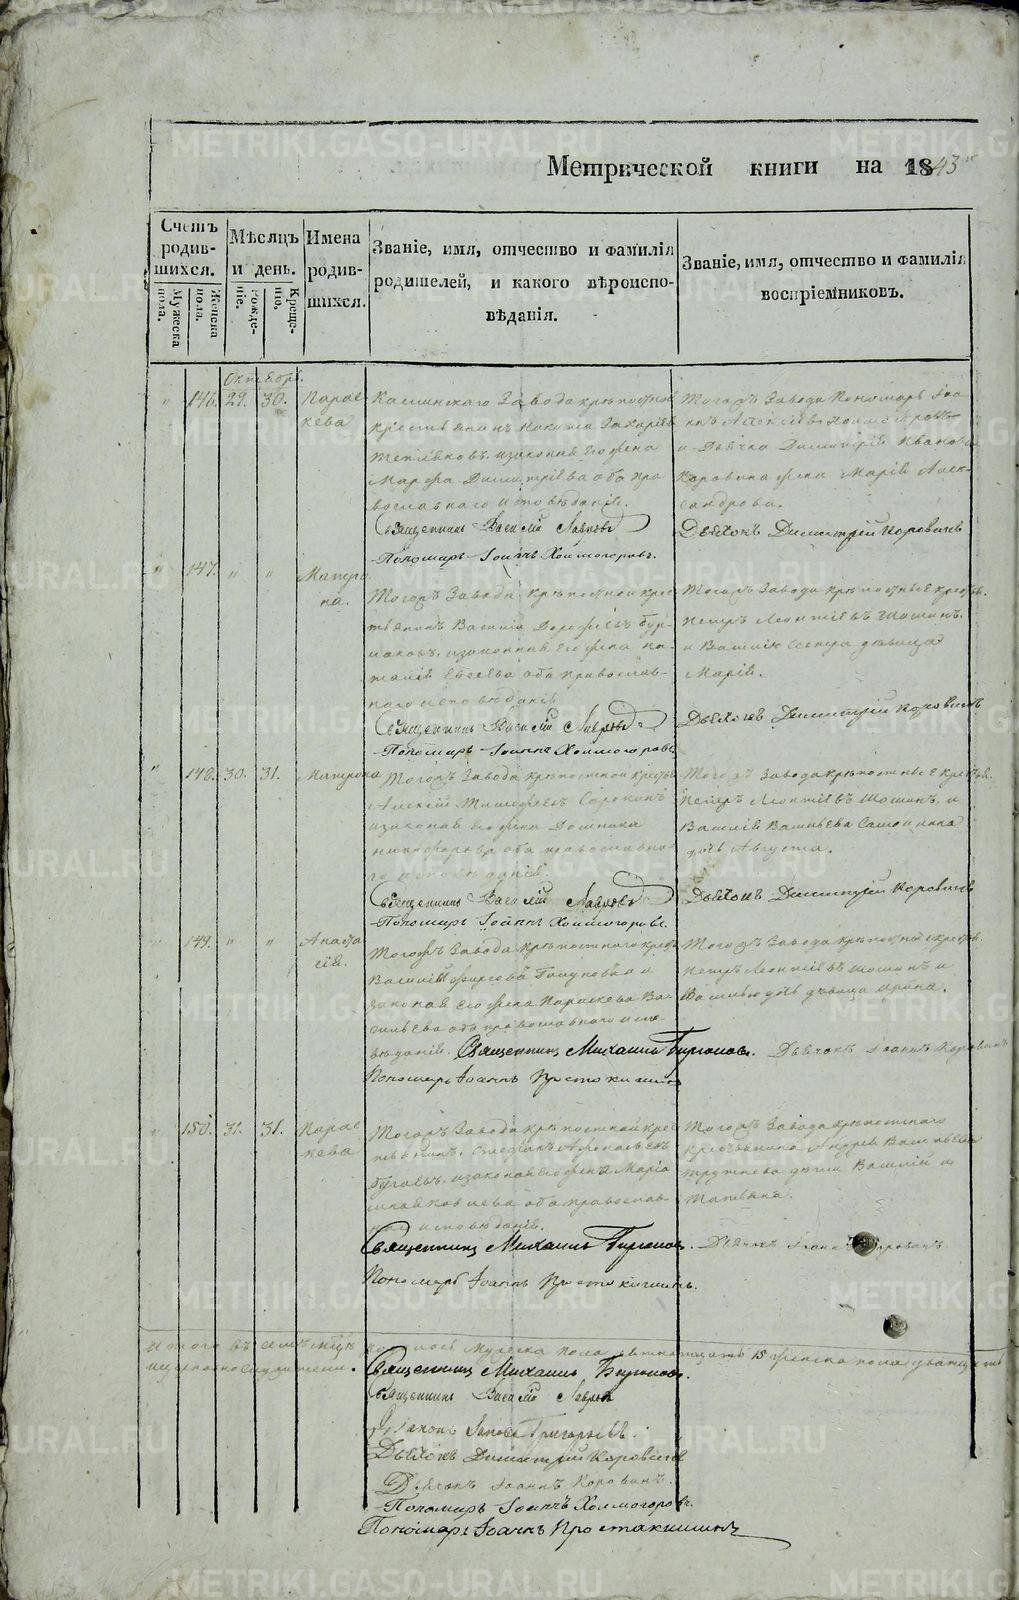 Метрической книги на 1843
Счетъ родившихся.
Мужеска пола.
Женска пола.
Мѣсяцъ и день.
Рожденіе.
Крещеніе.
Имена родившихся.
Званіе, имя, отчество и фамилія родителей, и какого вѣроисповѣданія.
Званіе, имя, отчество и фамилія воспріемниковъ.
Октябрь.
" 146. 29. 30. Параскева
Каслинскаго Завода крѣпостной
крестьянинъ Никита Захаріевъ
Тепляковъ, и законная его жена
Марфа Димитріева оба пра
вославнаго исповѣданія.
Священникъ Василій Лавровъ
Пономарь Іоаннъ Холмогоровъ.
Тогожъ Завода Пономарь Іоа
ннъ Алексіевъ Холмогоровъ
и Дьячка Димитрія Иванова
Коровина жена Марія Алек-
сандрова.
Дьячокъ Димитрій Коровинъ
" 147. " " Матро
на.
Тогожъ Завода крѣпостной крес
тьянинъ Василій Дорофѣевъ Бур-
маковъ, и законная его жена На-
талія Евсеева оба православ-
наго исповѣданія
Священникъ Василій Лавровъ
Пономарь Іоаннъ Холмогоровъ
Тогожъ Завода крѣпостные крестьян.
Петръ Леонтіевъ Шошинъ,
и Василію Сестра дѣвица
Марія.
Дьячокъ Димитрій Коровинъ
" 148. 30. 31. Матрона
Тогожъ Завода крѣпостной крестьян
Алексій Тимофѣевъ Сорокинъ
и законная его жена Домника
Никифорова оба православна-
го исповѣданія.
Священникъ Василій Лавровъ
Пономарь Іоаннъ Холмогоровъ.
Тогожъ Завода крѣпостные крестьян.
Петръ Леонтіевъ Шошинъ, и
Василія Васильева
дочь Августа.
Дьячокъ Димитрій Коровинъ
" 149. " " Анаста
сія.
Тогожъ Завода крѣпостнаго крестьян
Василій Фирсовъ и
законная его жена Параскева Ва-
сильева оба православнаго испо-
вѣданія. Священникъ Михаилъ Бирюковъ.
Пономарь Іоаннъ Простокишинъ
Тогожъ Завода крѣпостной крестьян.
Петръ Леонтіевъ Шошинъ и
дочь дѣвица Ирина.
Дьячокъ Іоаннъ Коровинъ
" 150. 31. 31. Парас
кева
Тогожъ Завода крѣпостной крес
тьянинъ, Стефанъ Афонасьевъ
Бугаевъ, и законная его жена Марія
оба православ-
наго исповѣданія.
Священникъ Михаилъ Бирюковъ.
Пономарь Іоаннъ Простокишинъ.
Тогожъ Завода крѣпостнаго
крестьянина Андрея Васильева
дѣти Василій и
Татьяна.
Дьячокъ Іоаннъ Коровинъ
Итого въ семъ мѣсяцѣ родилось мужеска пола пятнатцать 15 женска пола
Священникъ Михаилъ Бирюковъ.
Священникъ Василій Лавровъ
Діаконъ Григорьевъ.
Дьячокъ Димитрій Коровинъ
Дьячокъ Іоаннъ Коровинъ.
Пономарь Іоаннъ Холмогоровъ.
Пономарь Іоаннъ Простокишинъ
METRIKI.GASO-URAL.RU